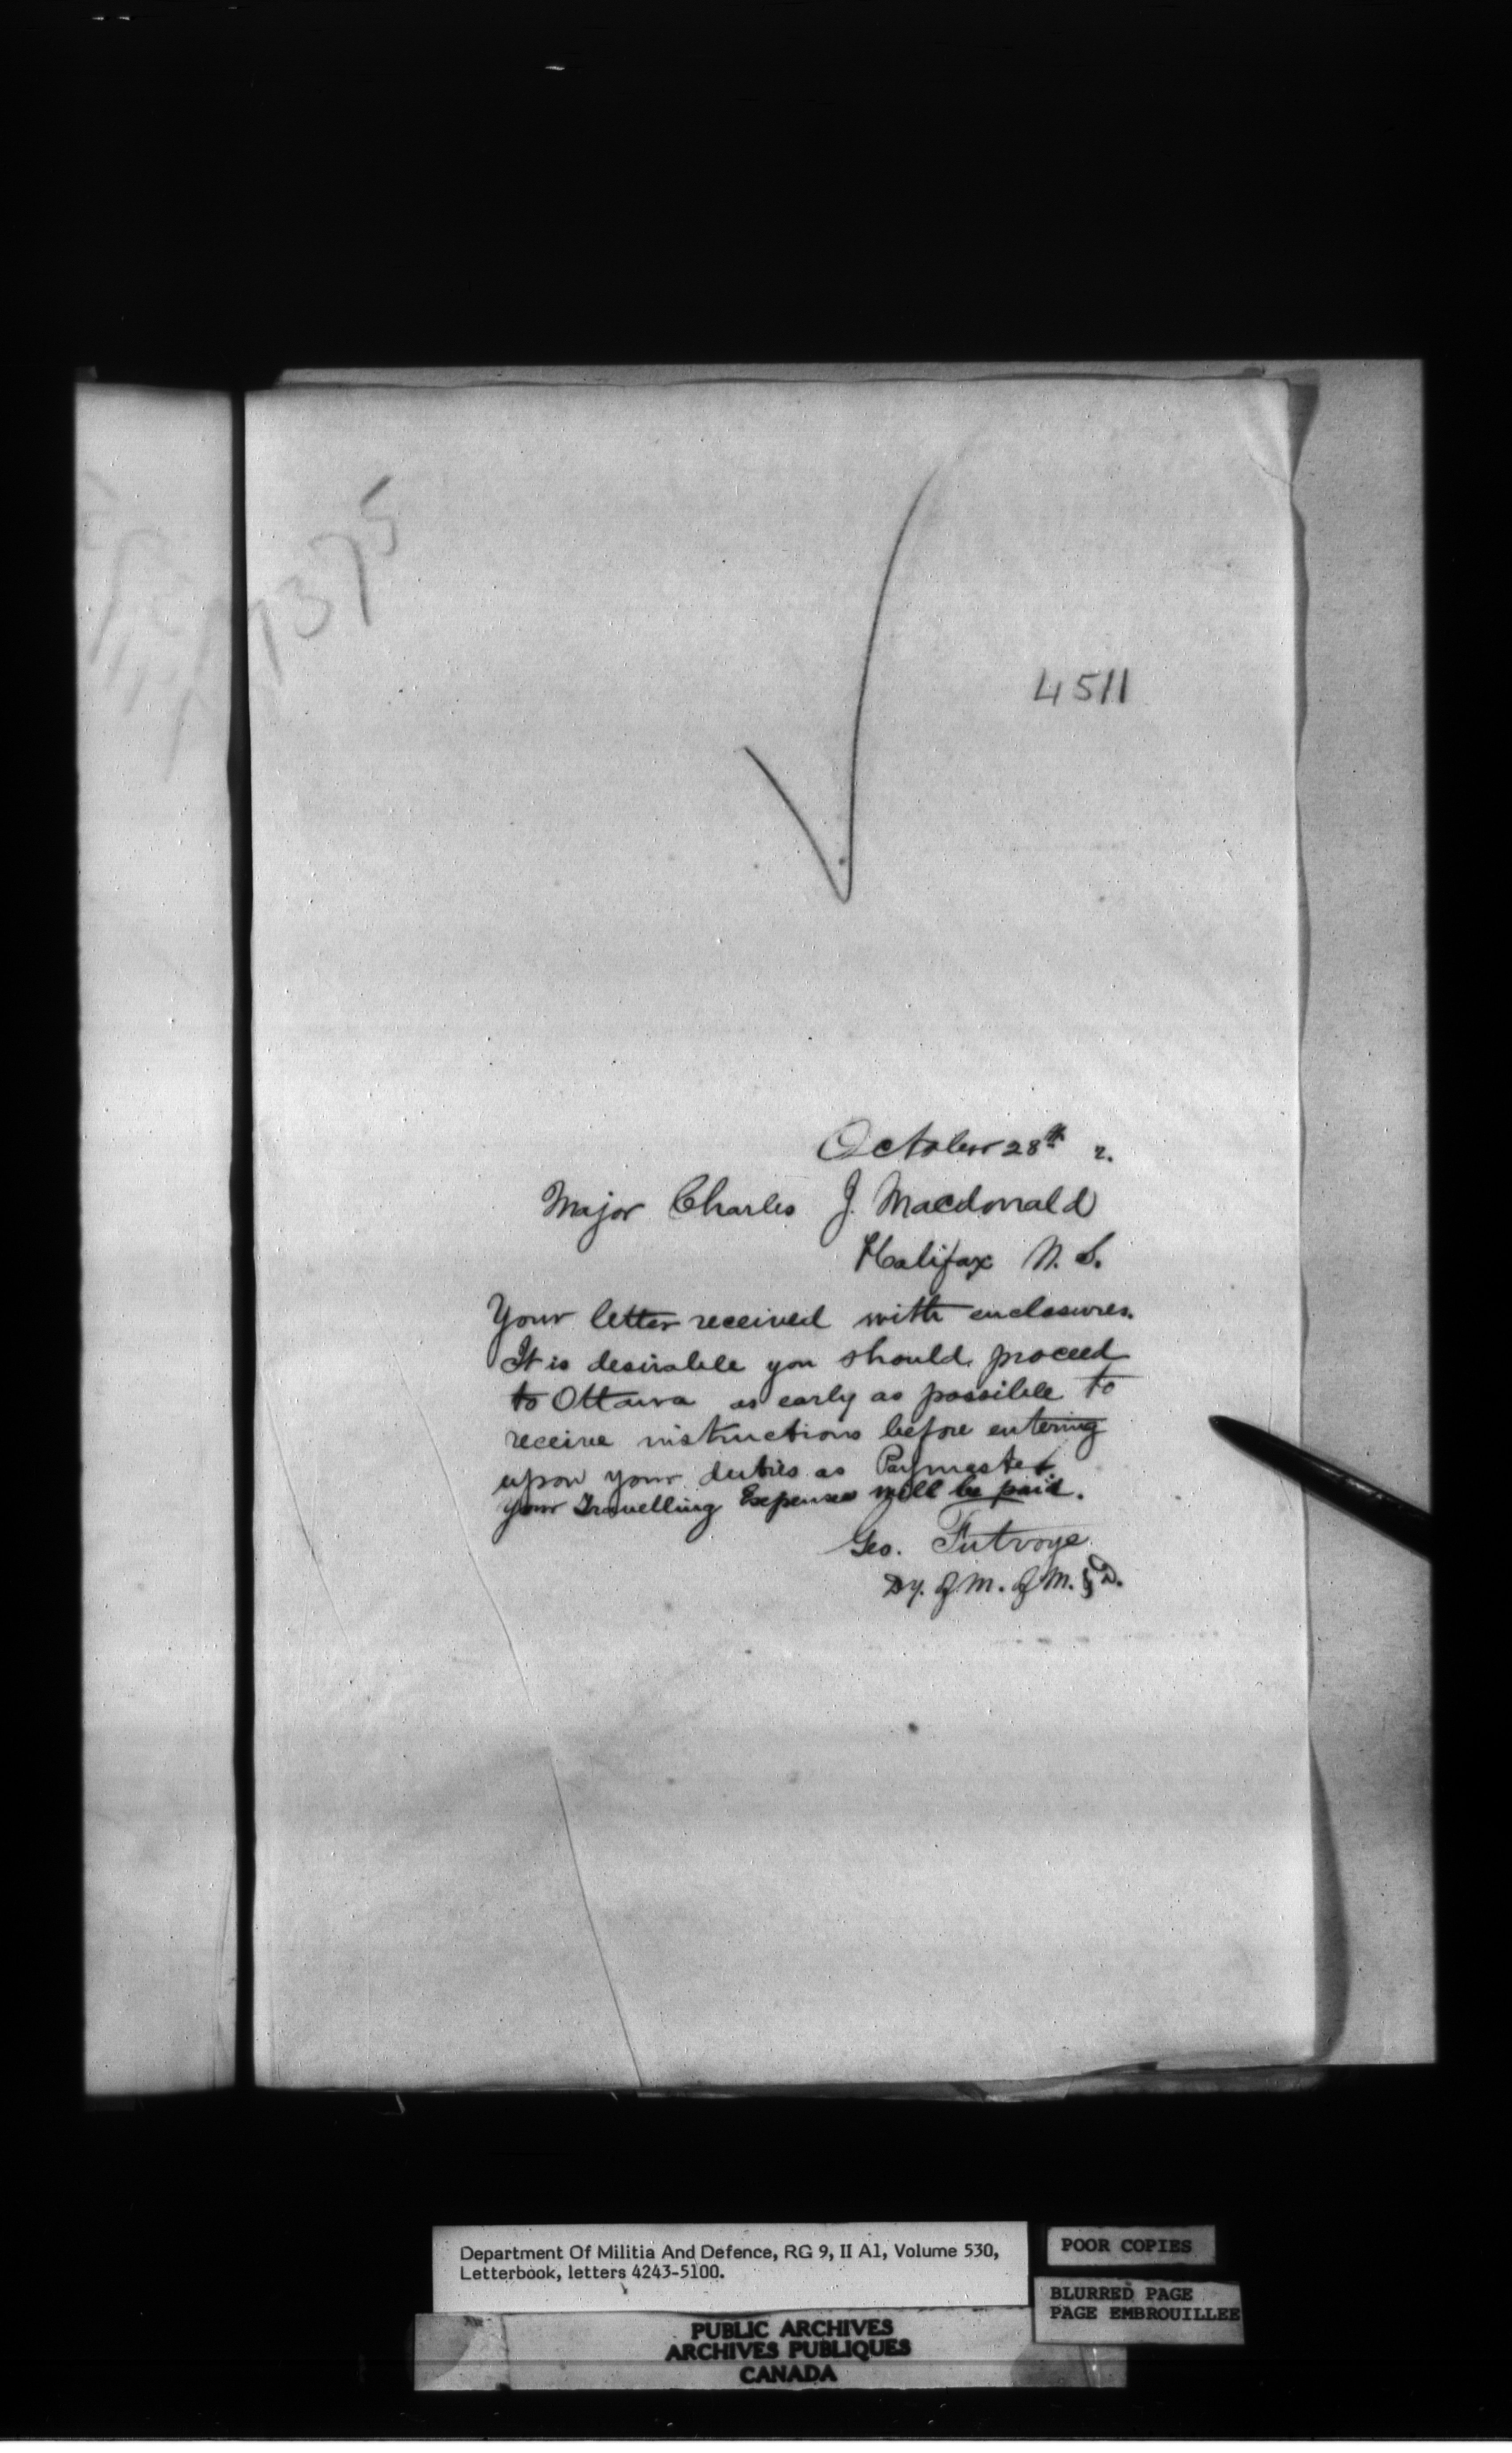 7375
4511
October 28th 2.
Major Charles J. Macdonald
Halifax N. S.
Your letter received with enclosures.
It is desirable you should proceed
to Ottawa as early as possible to
receive instructions before entering
upon your duties as Paymaster
your Travelling Expenses will be paid.
Geo. Futvoye
Dy. of M. of M. & D.
Department Of Militia And Defence, RG 9, II A1, Volume 530,
Letterbook, letters 4243-5100.
POOR COPIES
BLURRED PAGE
PAGE EMBROUILLEE
PUBLIC ARCHIVES
ARCHIVES PUBLIQUES
CANADA